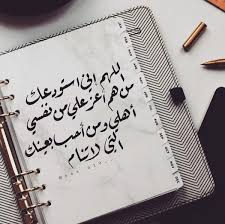 اللهم إني استودعتك
من هم أعز علي من نفسي
أهلي ومن أحب بعينك
التي لا تنام